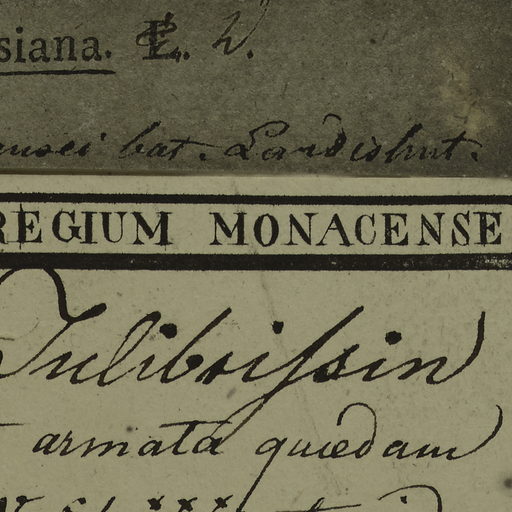 siana. W.
bat. Landishut.
REGIUM MONACENSE
Julibrissin
armata quædam